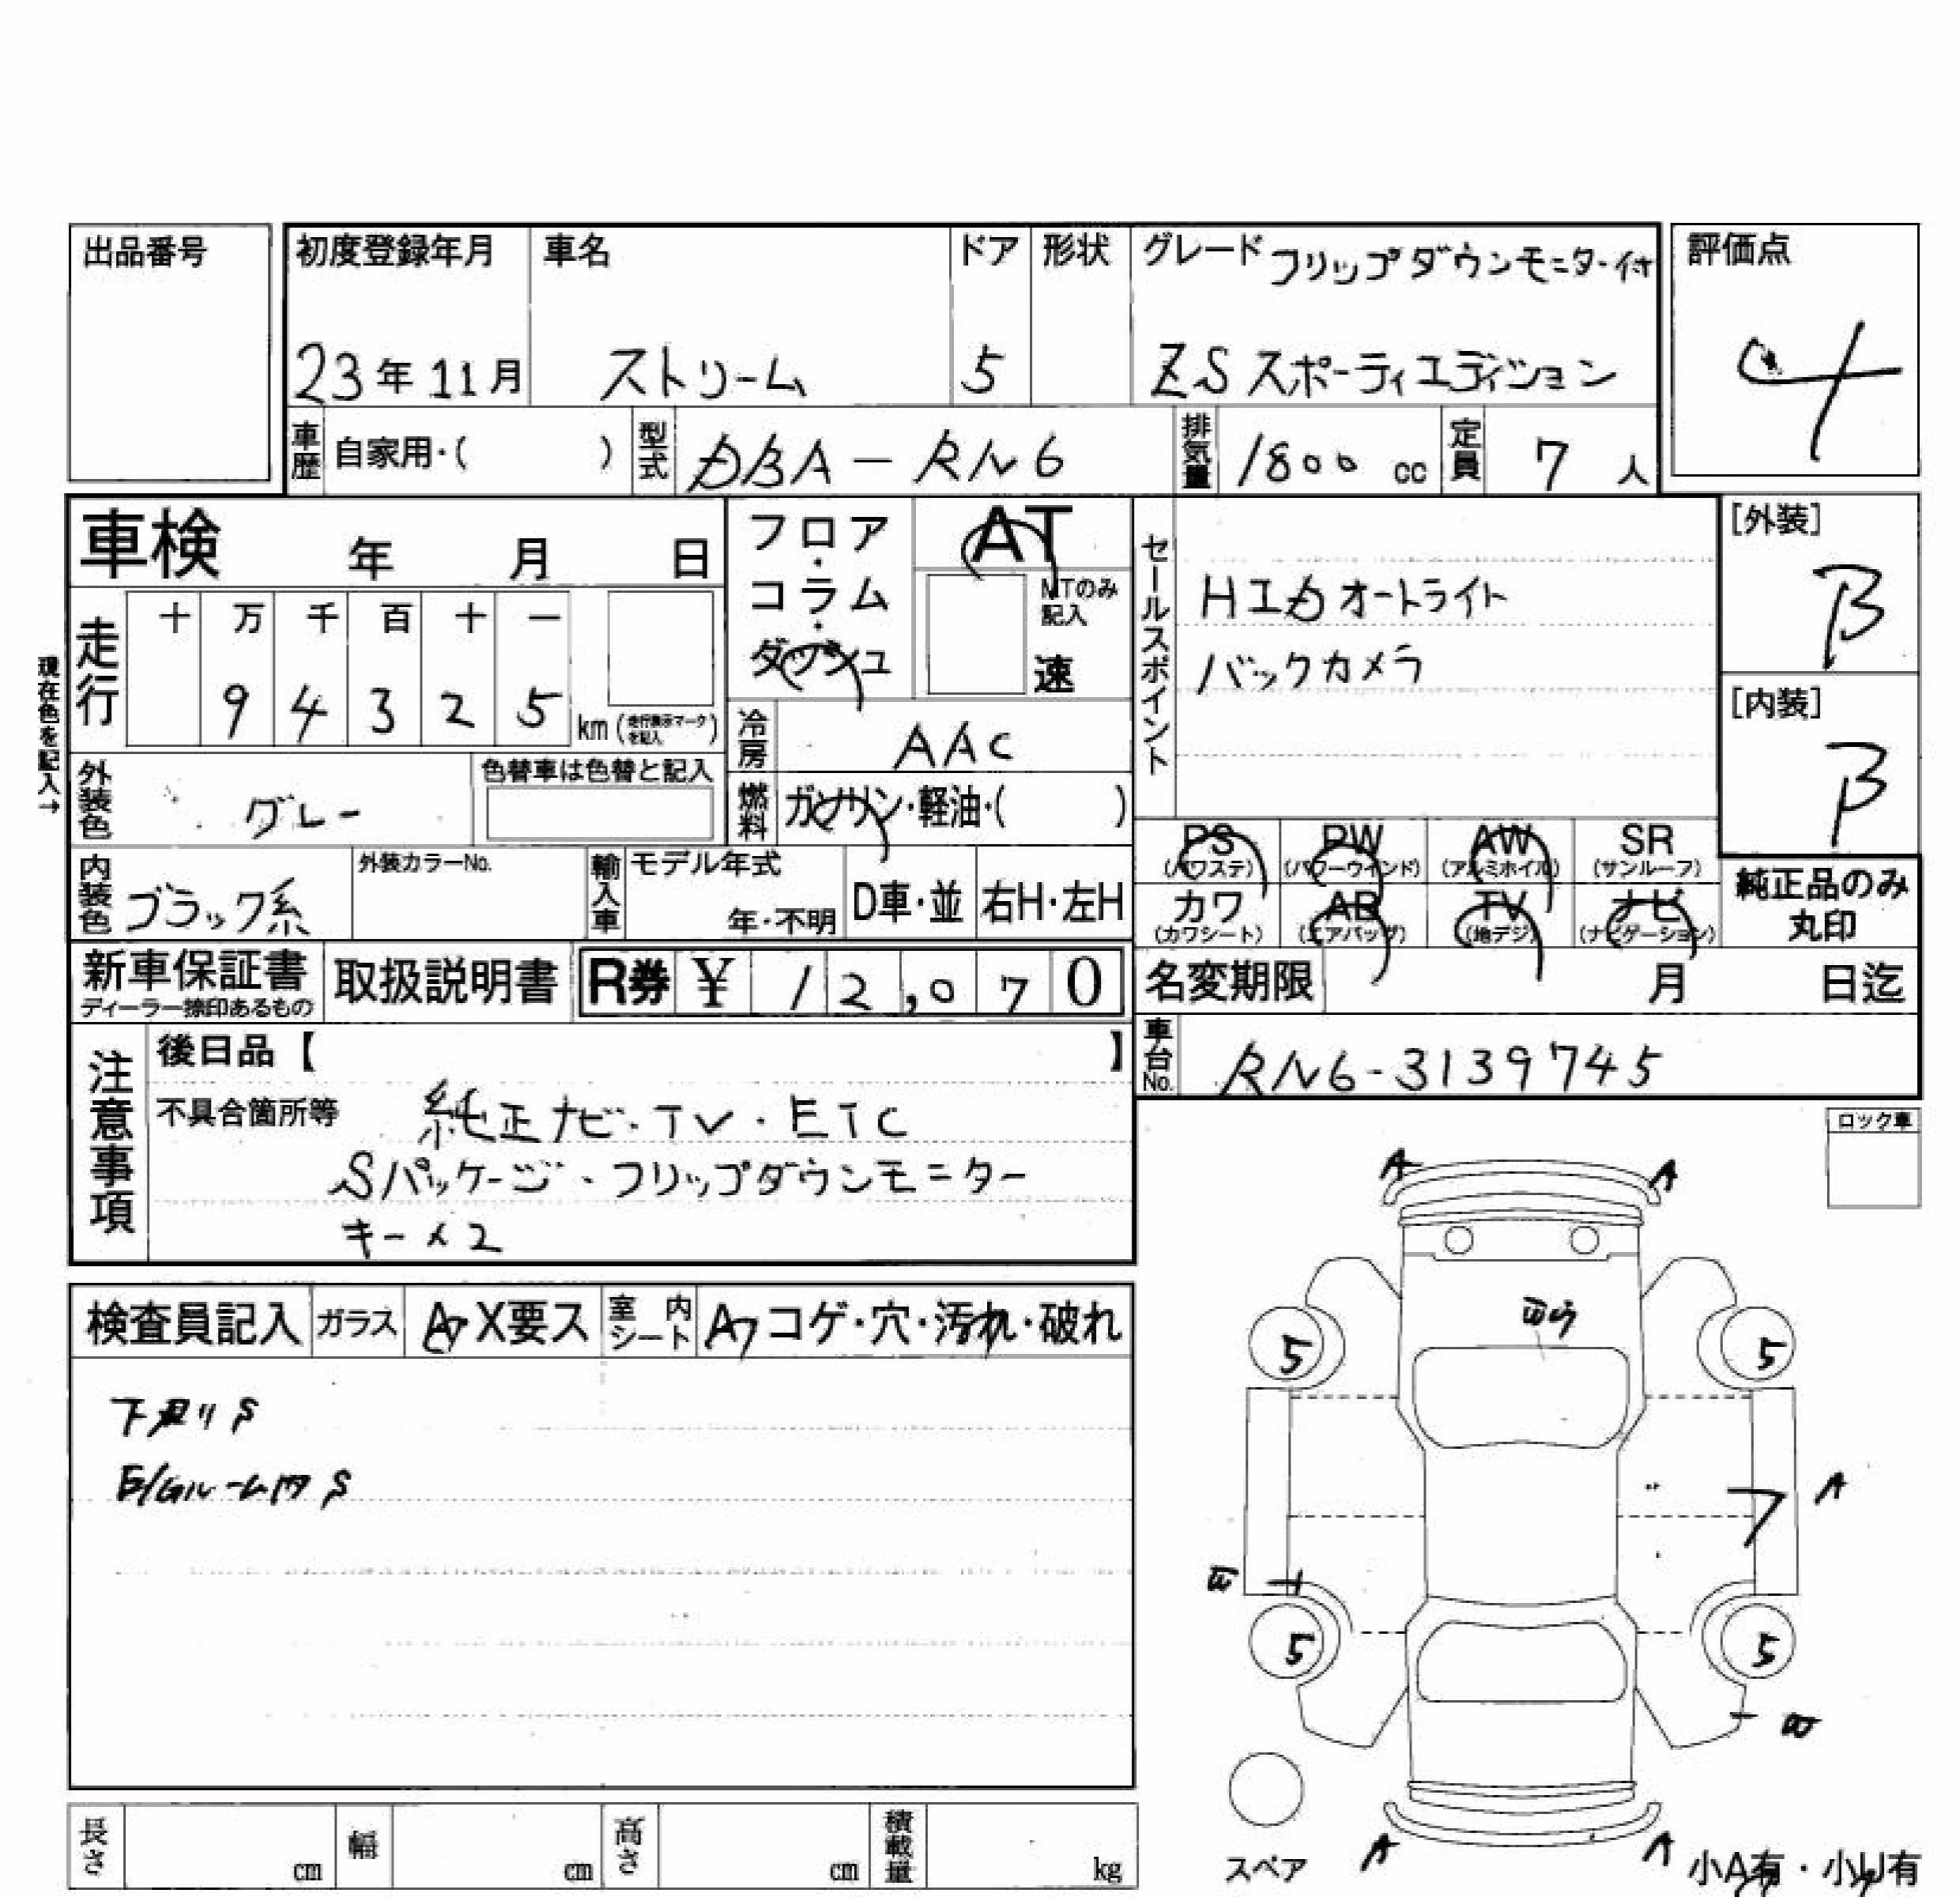 出品番号
初度登録年月
23年11月
車名
ストリーム
ドア
5
形状
グレード フリップダウンモニター付
ZS スポーティエディション
評価点
4
車歴 自家用・( )
型式 DBA-RN6
排気量 1800 cc
定員 7 人
車検 年 月 日
フロア・コラム・ダッシュ
AT
MTのみ記入
速
セールスポイント
HIDオートライト
バックカメラ
[外装]
B
[内装]
B
現在色を記入→
走行
十 万 千 百 十 一
9 4 3 2 5 km (走行表示マークを記入)
冷房 AAC
燃料 ガソリン・軽油・( )
外装色 グレー
色替車は色替と記入
内装色 ブラック系
外装カラーNo.
輸入車 モデル年式
年・不明
D車・並 右H・左H
PS (パワステ)
PW (パワーウインド)
AW (アルミホイル)
SR (サンルーフ)
カワ (カワシート)
AB (エアバッグ)
TV (地デジ)
ナビ (ナビゲーション)
純正品のみ
丸印
新車保証書
ディーラー捺印あるもの
取扱説明書
R券 ¥ 12,070
名変期限 月 日迄
車台No. RN6-3139745
注意事項
後日品【 】
不具合箇所等 純正ナビ・TV・ETC
Sパッケージ・フリップダウンモニター
キー×2
ロック車
検査員記入 ガラス A X要ス 室内シート A コゲ・穴・汚れ・破れ
下廻りS
E/Gルーム内S
A A
5 5
A
5 5
A A
スペア
小A有・小U有
長さ cm 幅 cm 高さ cm 積載量 kg